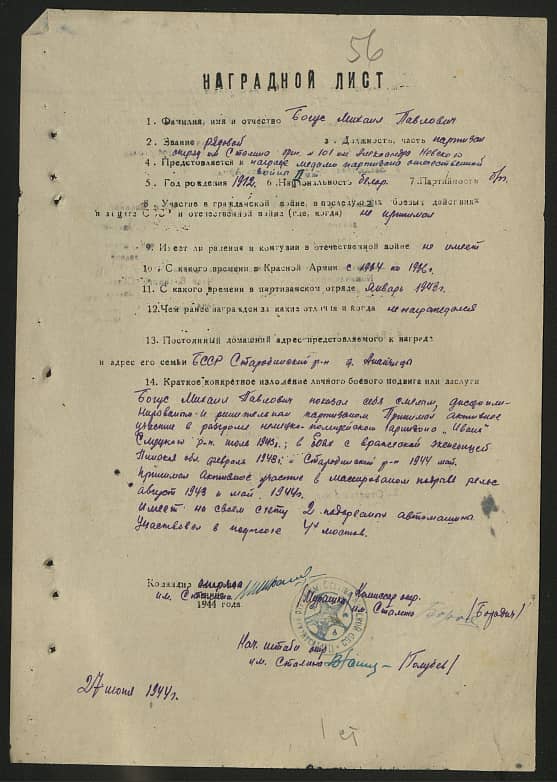 56
НАГРАДНОЙ ЛИСТ
1. Фамилия, имя и отчество Богус Михаил Павлович
2. Звание рядовой 3. Должность, часть партизан
отряд им Сталина бриг. № 101 им Александра Невского
4. Представляется к награде медаль партизана отечественной
войны II
5. Год рождения 1912 6. Национальность белор. 7. Партийность б/п.
8. Участие в гражданской войне, в последующих боевых действиях
и отечественной войне (где, когда) не принимал
9. Имеет ли ранения и контузии в отечественной войне не имеет
10. С какого времени в Красной Армии с 1934 по 1936г.
11. С какого времени в партизанском отряде Январь 1943г.
12. Чем ранее награжден за какие отличия и когда не награждался
13. Постоянный домашний адрес представляемого к награде
и адрес его семьи БССР Стародорожский р-н д.
14. Краткое конкретное изложение личного боевого подвига или заслуги
Богус Михаил Павлович показал себя смелым, дисципли-
нированным и решительным партизаном Принимал активное
участие в разгроме немецко-полицейского гарнизона "Ивань"
Слуцкого р-н. июль 1943г.; в боях с вражеской экспедицей
Пинская обл. февраль 1943г. и Стародорожский р-н 1944 май.
Принимал активное участие в массированом подрыве рельс
август 1943 и май 1944г.
Имеет на своем счету 2 подорваных автомашины
Участвовал в поджоге 4х мостов.
Командир отряда
им. Сталина
1944 года
/Мурашко/
Комиссар отр.
им. Сталина /Борович/
Нач. штаба отр
им. Сталина /Голубев/
27 июня 1944г.
1 ст